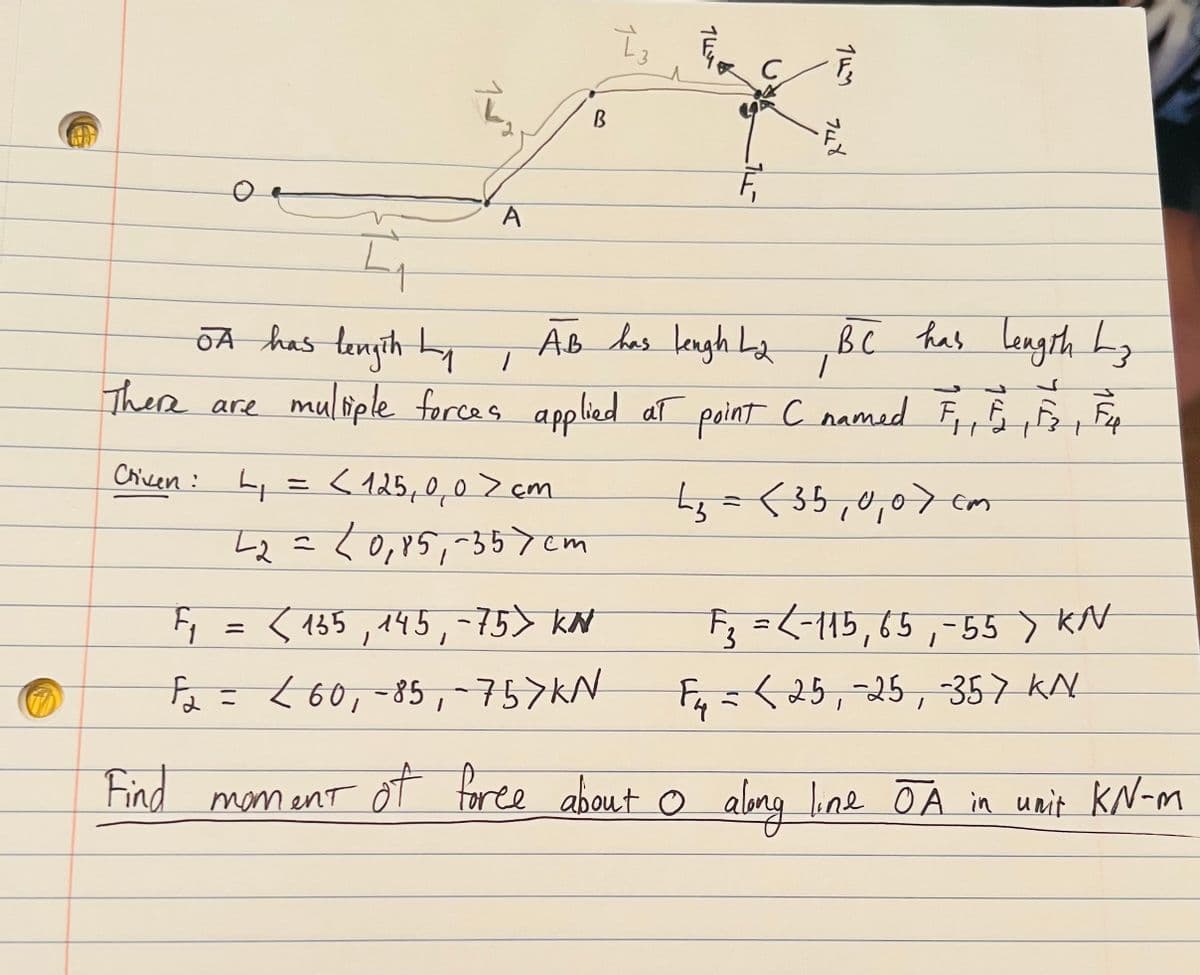 L₃ F₄ C F₃
L₂ B F₂
O A F₁
L₁
OA has length L₁ , AB has lengh L₂ , BC has length L₃
There are multiple forces applied at point C named F₁, F₂, F₃, F₄
Given : L₁ = <125,0,0> cm L₃ = <35,0,0> cm
L₂ = <0,85,-35> cm
F₁ = <135,145,-75> kN F₃ = <-115,65,-55> kN
F₂ = <60,-85,-75> kN F₄ = <25,-25,-35> kN
Find moment of force about O along line OA in unit KN-m